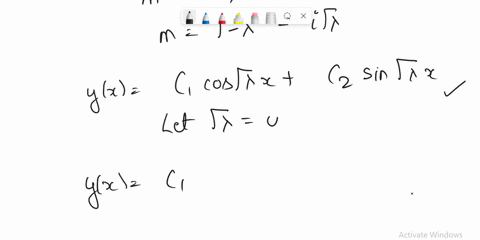 m = √-λ = i√λ
y(x) = C₁ cos√λ x + C₂ sin√λ x ✓
Let √λ = u
y(x) = C₁
Activate Windows